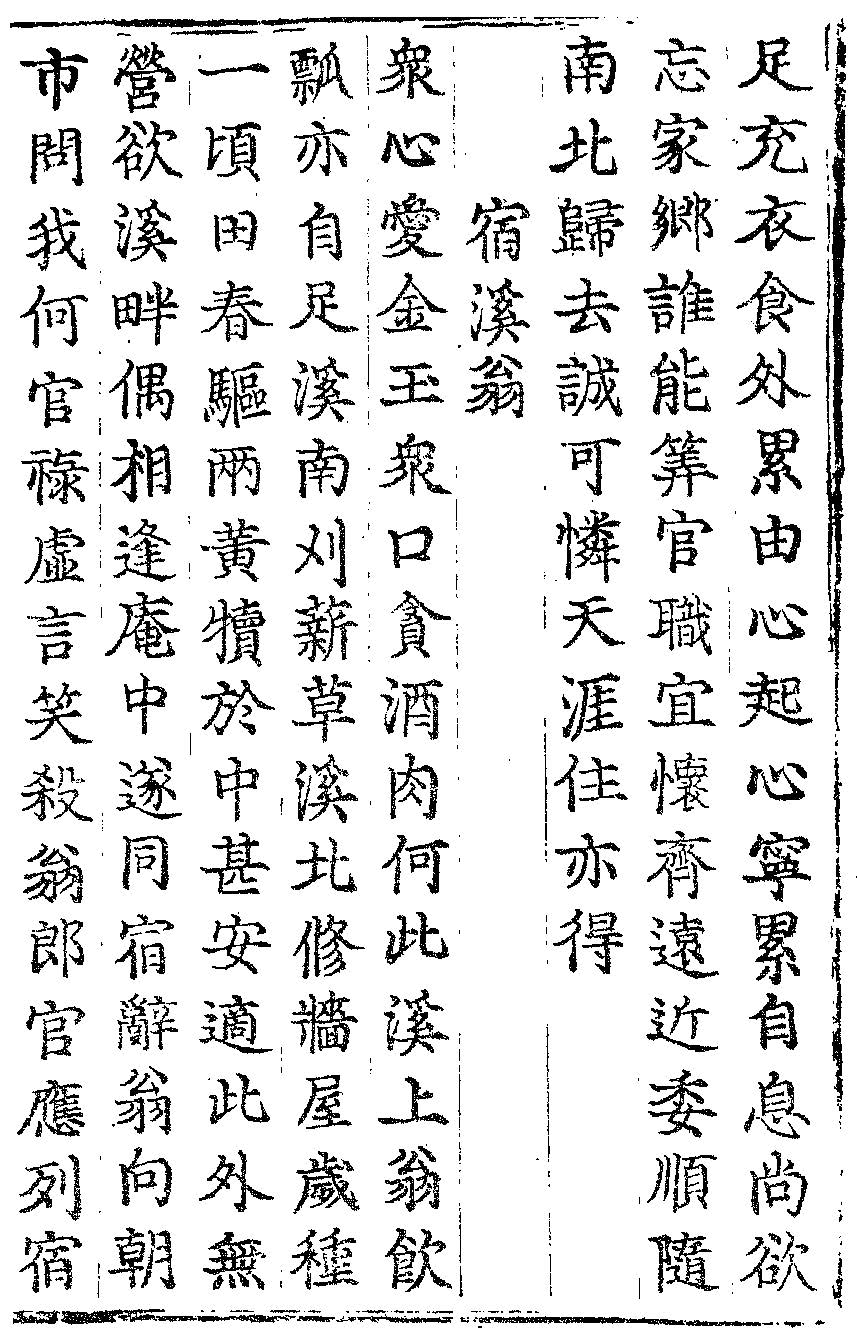 足充衣食外累由心起心寧累自息尚欲
忘家鄉誰能筭官職宜懷齊遠近委順隨
南北歸去誠可憐天涯住亦得
宿溪翁
衆心愛金玉衆口貪酒肉何此溪上翁飮
瓢亦自足溪南刈薪草溪北修牆屋歲種
一頃田春驅兩黃犢於中甚安適此外無
營欲溪畔偶相逢庵中遂同宿辭翁向朝
市問我何官祿虛言笑殺翁郎官應列宿